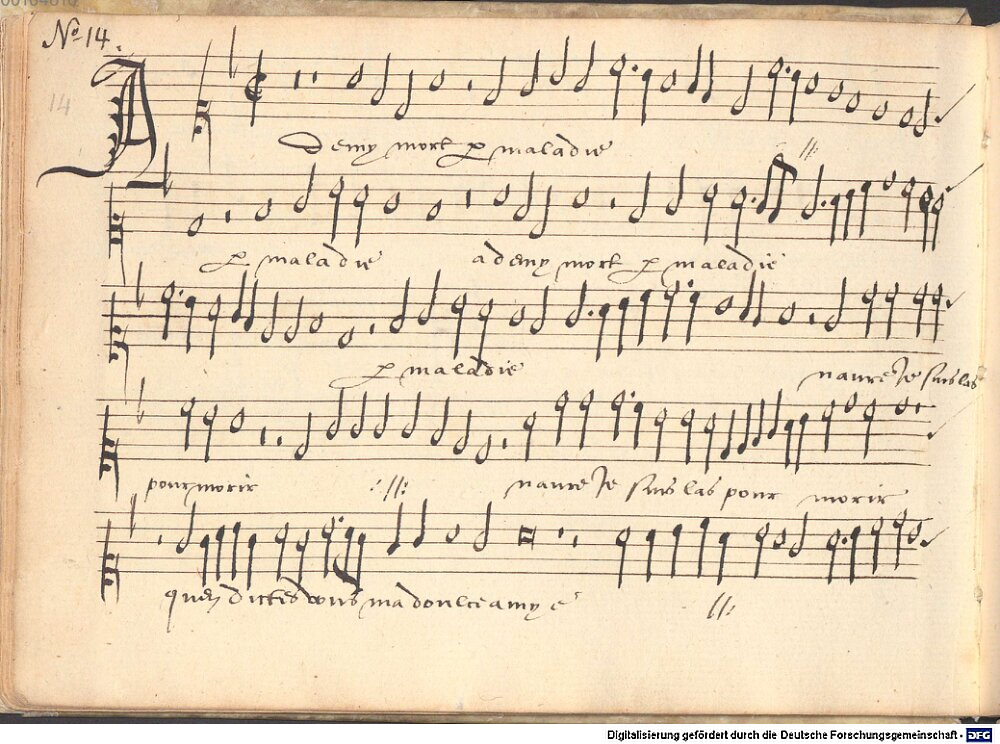 00104616
No 14.
14
A demy mort p maladie ://:
p maladie a demy mort p maladie
p maladie navre Je suis las
pour morir ://: navre Je suis las pour morir
quen dictes vous ma doulce amye ://:
Digitalisierung gefördert durch die Deutsche Forschungsgemeinschaft - DFG